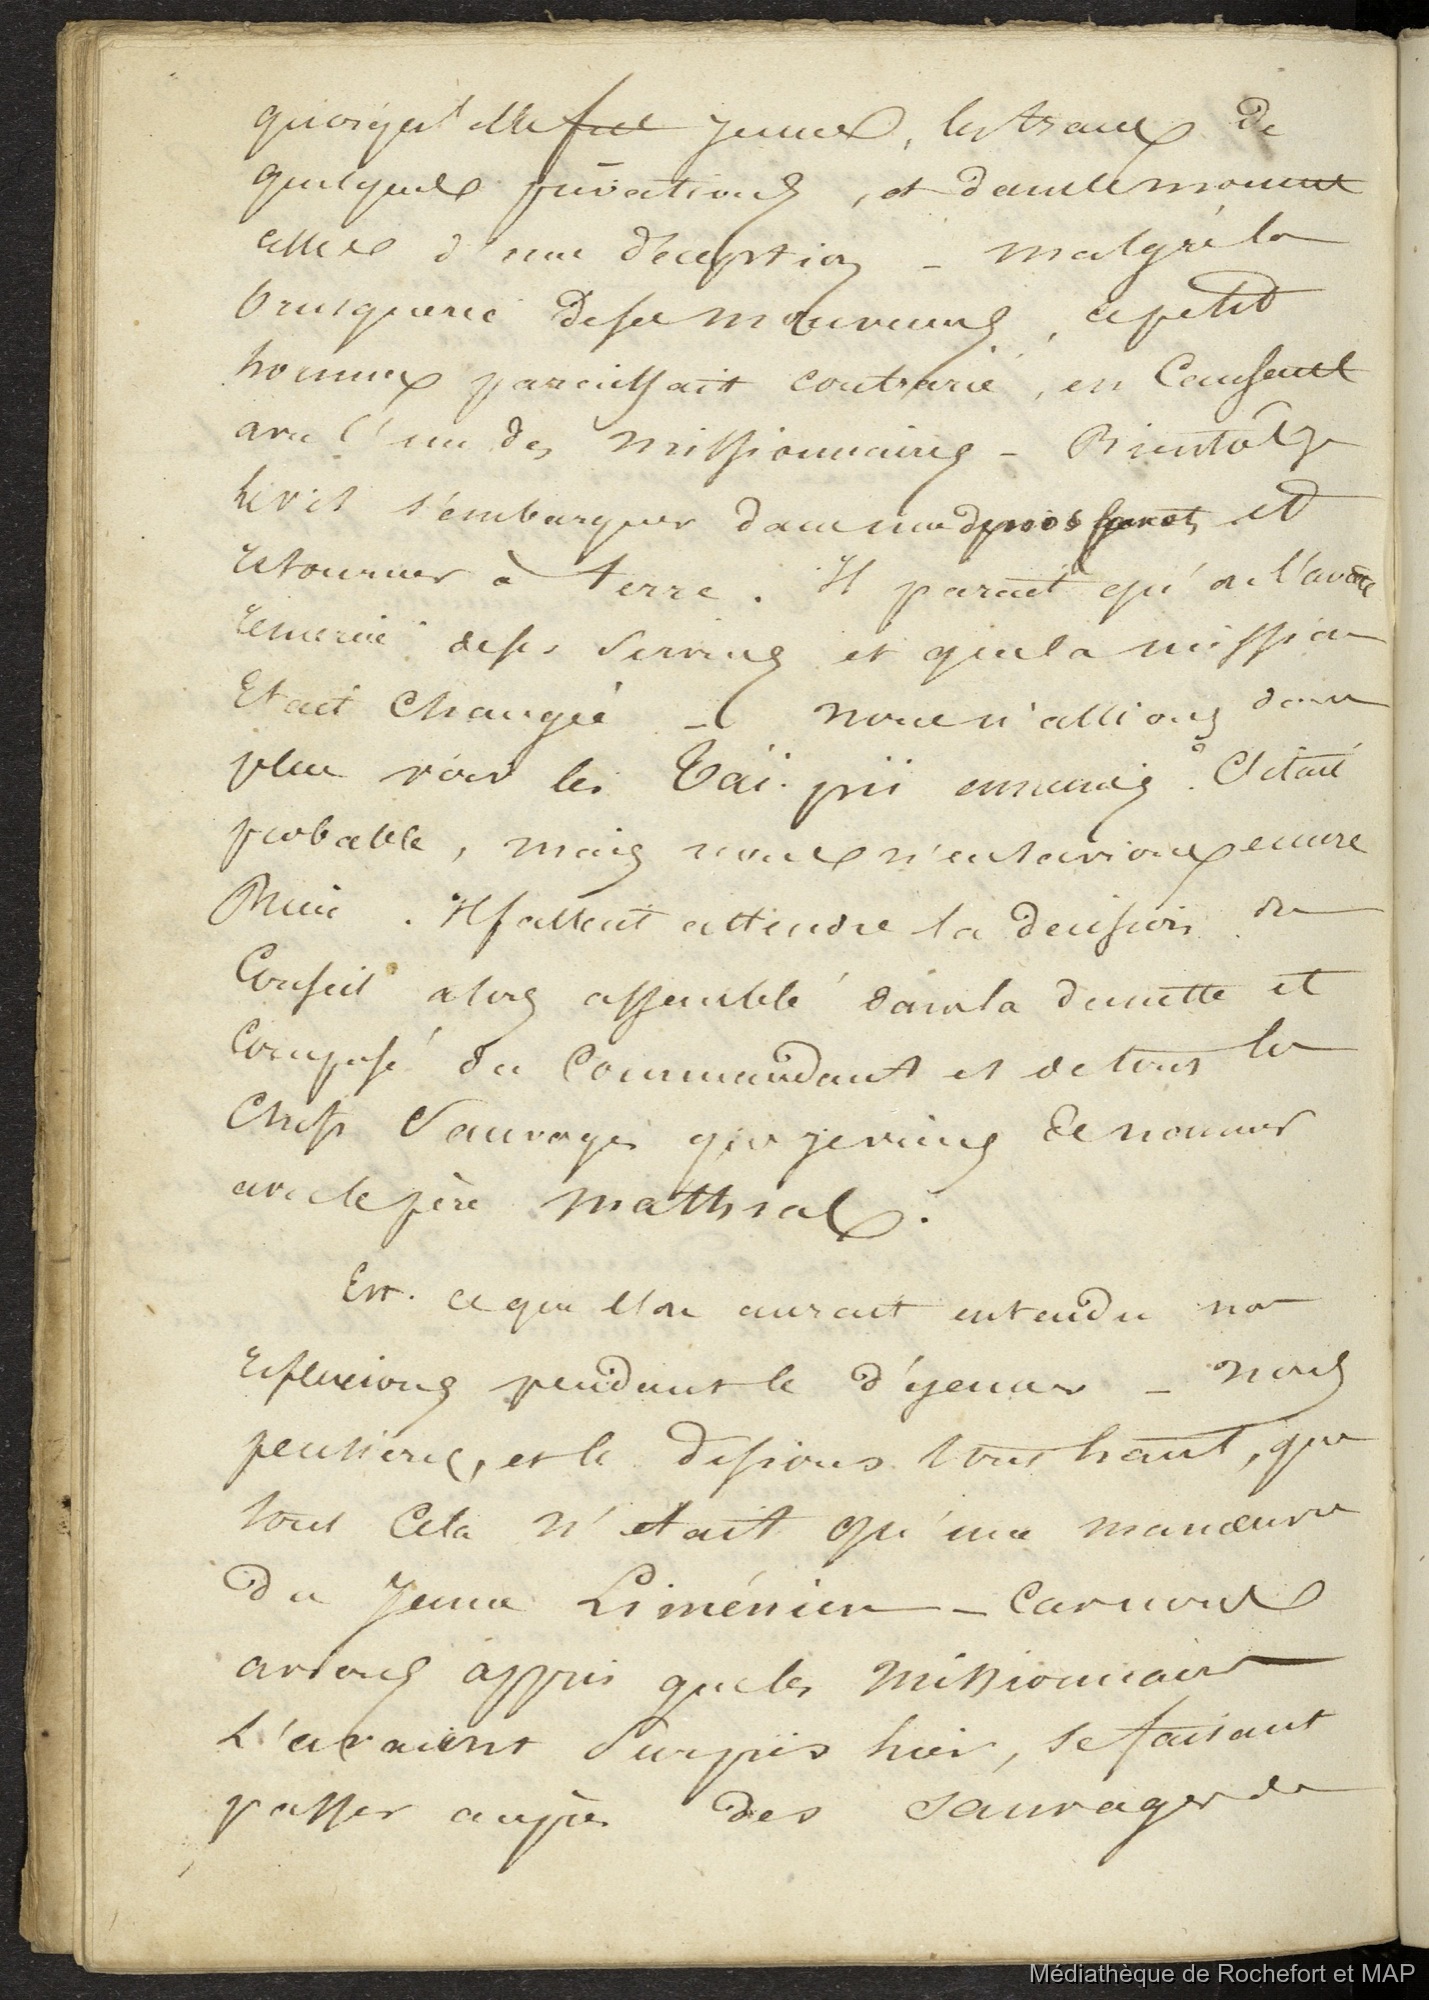 quoiqu'elle fut jeune, les traces de
quelques privations, et dans le moment
celle d'une déception – malgré la
brusquerie de ses mouvemens, ce petit
homme paraissait contrarié, en causant
avec l'un des missionnaires – Bientôt je
le vis s'embarquer dans une des pirogues et
retourner à terre. Il parait qu'on l'avait
remercié de ses services et que la mission
était changée – nous n'allions donc
plus voir les Taï-pii ennemis. C'était
probable, mais nous n'en savions encore
Rien. Il fallait attendre la decision du
Conseil alors assemblé dans la dunette et
Composé du Commandant et de tous les
Chefs Sauvages que je viens de nommer
avec le père Mathias.
Est-ce que l'on aurait entendu nos
reflexions pendant le déjeuner – nous
pensions, et le disions tout haut, que
tout cela n'était qu'une manœuvre
du jeune Liménien – car nous
avions appris que les Missionnaires
L'avaient Surpris hier, se faisant
passer auprès des Sauvages de
Médiathèque de Rochefort et MAP